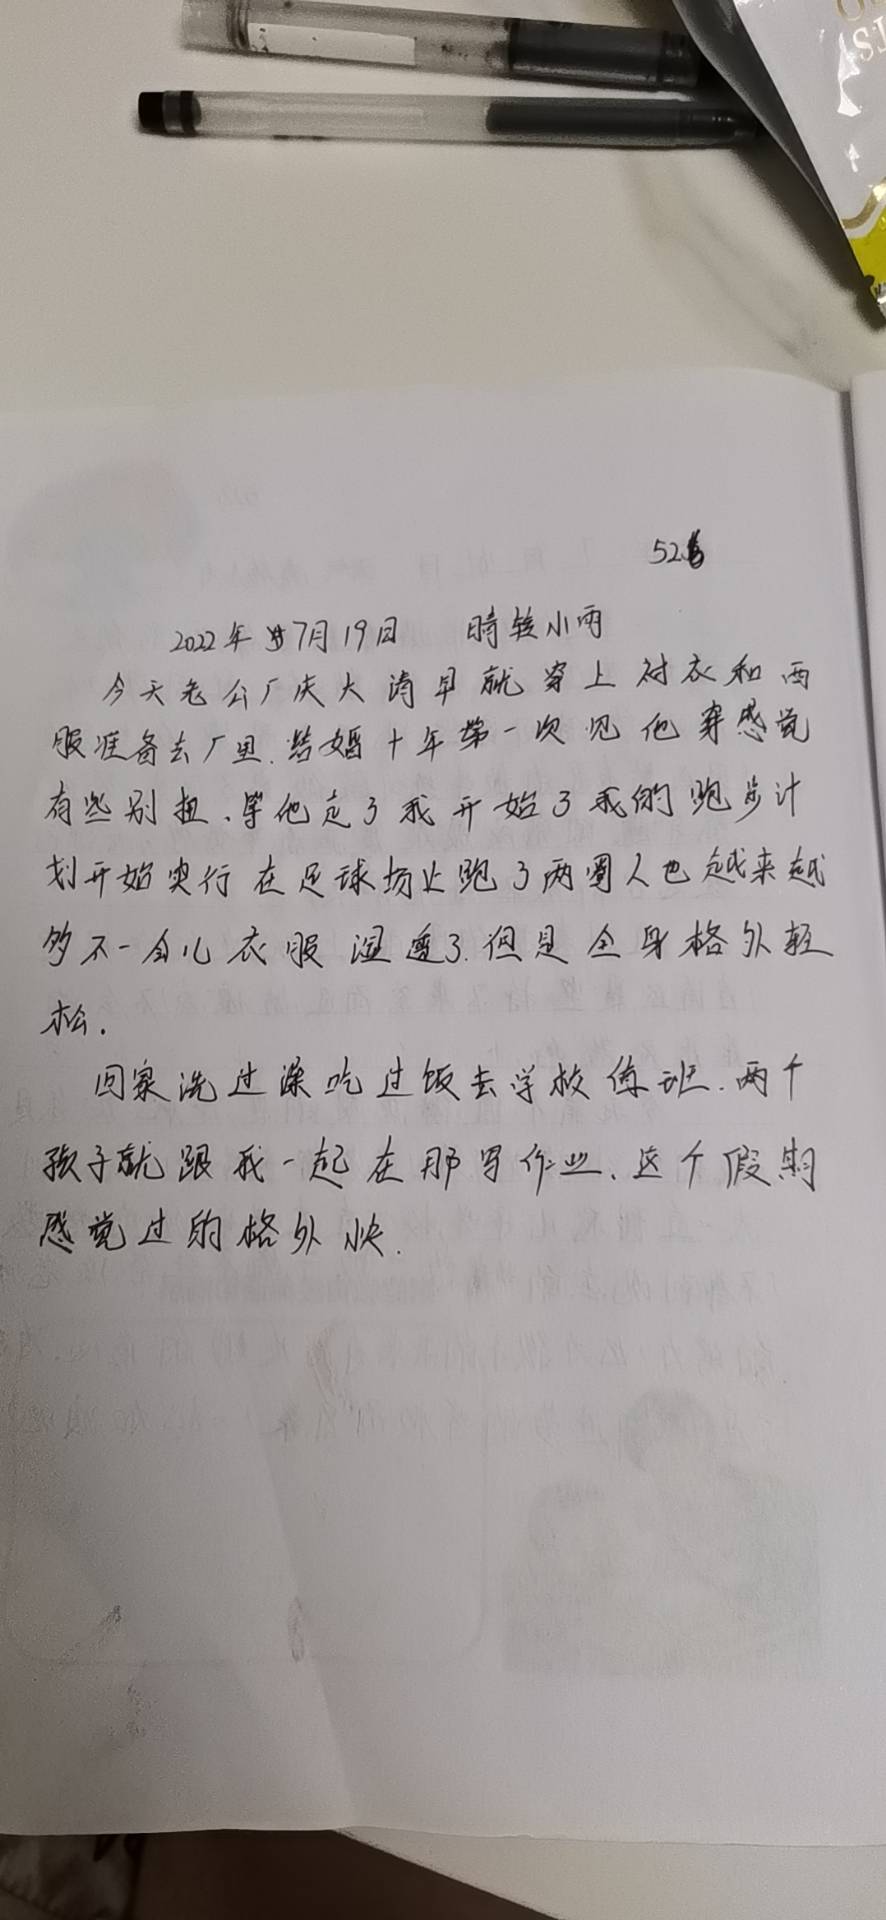 52
2022年7月19日 晴转小雨
今天老公厂庆大清早就穿上衬衣和西
服准备去厂里.结婚十年第一次见他穿感觉
有些别扭、等他走了我开始了我的跑步计
划开始实行在足球场上跑了两圈人也越来越
多不一会儿衣服湿透了.但是全身格外轻
松.
回家洗过澡吃过饭去学校值班.两个
孩子就跟我一起在那写作业、这个假期
感觉过的格外快.